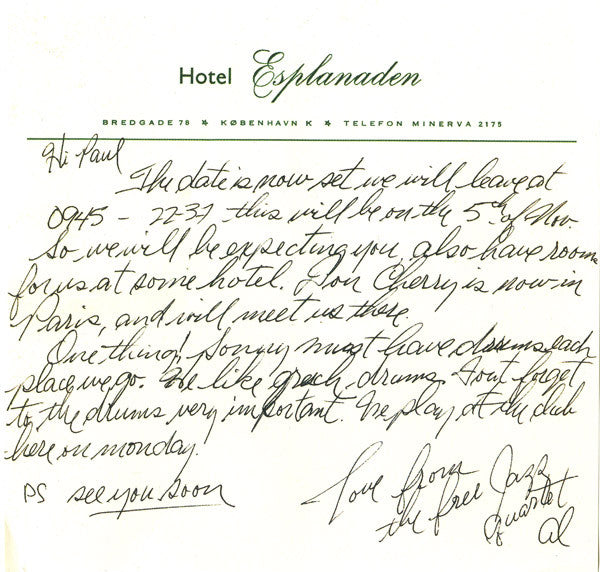 Hotel Esplanaden
BREDGADE 78 ★ KØBENHAVN K ★ TELEFON MINERVA 2175
Hi Paul
The date is now set we will leave at
0945 - 22-37 this will be on the 5th of Nov.
So we will be expecting you, also have room
for us at some hotel. Don Cherry is now in
Paris, and will meet us there.
One thing! Sonny must have drums each
place we go. He like grech drums. Dont forget
to the drums very important. We play at the club
here on monday.
PS see you soon
Love from
the free Jazz
quartet
Al